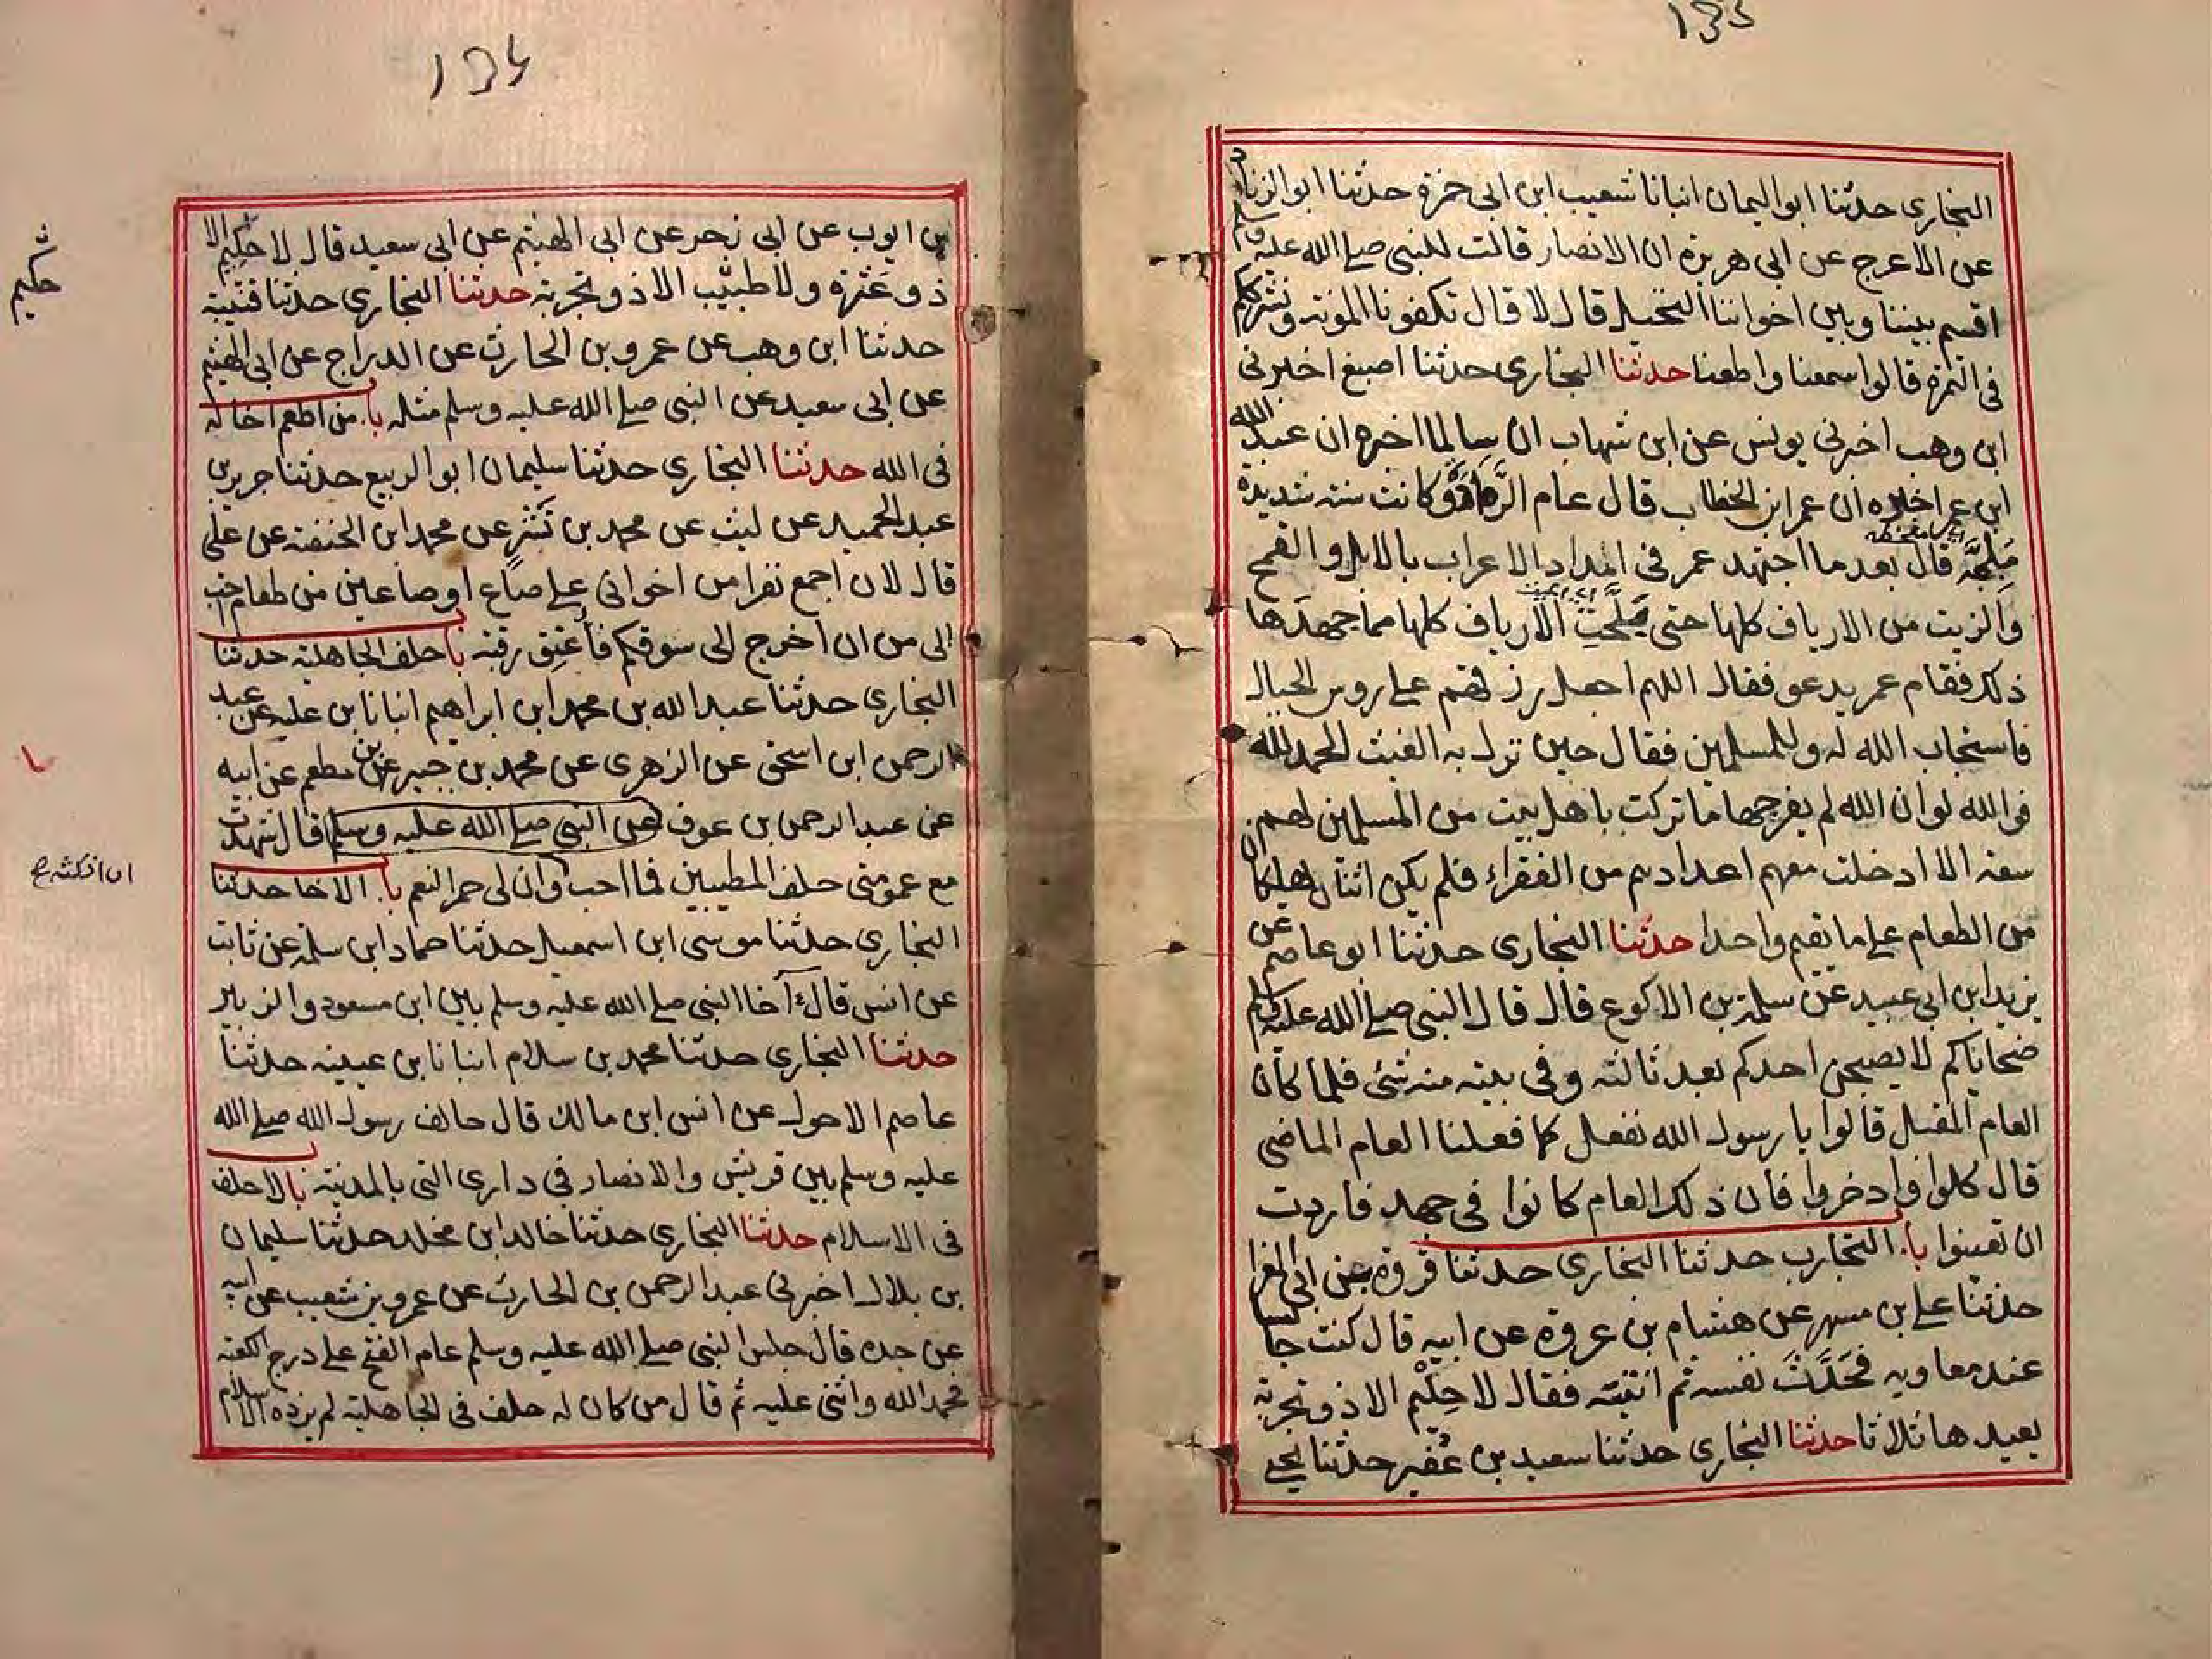 ١٣٥
البخاري حدثنا ابو اليمان انبانا شعيب ابن ابي حمزة حدثنا ابو الزناد
عن الاعرج عن ابي هريرة ان الانصار قالت للنبي صلى الله عليه وسلم
اقسم بيننا وبين اخواننا النخيل قال لا قال تكفونا المونة ونشرككم
فى الثمرة قالوا سمعنا واطعنا حدثنا البخاري حدثنا اصبغ اخبرني
ابن وهب اخبرني يونس عن ابن شهاب ان سالما اخبره ان عبد الله
ابن عمر اخبره ان عمر ابن الخطاب قال عام الرَّمادة وكانت سنة شديدة
مُلِحَّة قال بعدما اجتهد عمر في امداد الاعراب بالابل والقمح
والزيت من الارياف كلها حتى بَلَحَتِ الارياف كلها مما جهدَها
ذلك فقام عمر يدعو فقال اللهم اجعل رزقهم على روس الجبال
فاستجاب الله له وللمسلمين فقال حين نزل به الغيث الحمد لله
فوالله لو ان الله لم يفرجها ما تركت باهل بيت من المسلمين لهم
سعة الا ادخلت معهم اعدادهم من الفقراء فلم يكن اثنان يهلكان
من الطعام على ما يقيم واحدا حدثنا البخاري حدثنا ابو عاصم عن
يزيد ابن ابي عبيد عن سلمة بن الاكوع قال قال النبي صلى الله عليه وسلم
ضحاياكم لا يصبحن احدكم بعد ثالثة وفي بيته منه شئ فلما كان
العام المقبل قالوا يا رسول الله نفعل كما فعلنا العام الماضي
قال كلوا وادخروا فان ذلك العام كانوا في جهد فاردت
ان تعينوا با. التجارب حدثنا البخاري حدثنا فروة بن ابي المغرا
حدثنا علي بن مسهر عن هشام بن عروة عن ابيه قال كنت جالسا
عند معاويه فحَدَّثَ نفسه ثم انتبه فقال لا حِلْم الا ذو تجربة
يعيدها ثلاثا حدثنا البخاري حدثنا سعيد بن عُفَير حدثنا يحيى
١٣٤
بن ايوب عن ابي زحر عن ابي الهيثم عن ابي سعيد قال لا حكيم الا
ذو عَثْرة ولا طبيب الا ذو تجربة حدثنا البخاري حدثنا قتيبة
حدثنا ابن وهب عن عمرو بن الحارث عن الدراج عن ابي الهيثم
عن ابي سعيد عن النبي صلى الله عليه وسلم مثله با. من اطعم اخا له
فى الله حدثنا البخاري حدثنا سليمان ابو الربيع حدثنا جرير بن
عبد الحميد عن ليث عن محمد بن نَشْر عن محمد ابن الحنفية عن على
قال لان اجمع نفرا من اخواني على صاع او صاعين من طعام احب
الى من ان اخرج الى سوقكم فاعتق رقبة با حلف الجاهلية حدثنا
البخاري حدثنا عبد الله بن محمد ابن ابراهيم انبانا بن علية عن عبد
الرحمن ابن اسحق عن الزهري عن محمد بن جبير بن مطعم عن ابيه
عن عبد الرحمن بن عوف عن النبي صلى الله عليه وسلم قال شهدت
مع عمومتي حلف المطيبين فما احب وان لي حمر النعم با. الاخا حدثنا
البخاري حدثنا موسى ابن اسمعيل حدثنا حماد ابن سلمة عن ثابت
عن انس قال آخا النبي صلى الله عليه وسلم بين ابن مسعود والزبير
حدثنا البخاري حدثنا محمد بن سلام انبانا بن عيينه حدثنا
عاصم الاحول عن انس ابن مالك قال حالف رسول الله صلى الله
عليه وسلم بين قريش والانصار في داري التي بالمدينة با لا حلف
فى الاسلام حدثنا البخاري حدثنا خالد ابن مخلد حدثنا سليمان
بن بلال اخبرني عبد الرحمن بن الحارث عن عمرو بن شعيب عن ابيه
عن جده قال جلس النبي صلى الله عليه وسلم عام الفتح على درج الكعبة
فحمد الله واثنى عليه ثم قال من كان له حلف فى الجاهلية لم يزده الاسلام
حكيم
ان انكثه